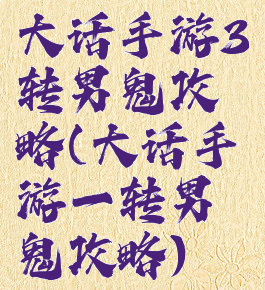 大话手游3
转男鬼攻
略(大话手
游一转男
鬼攻略)